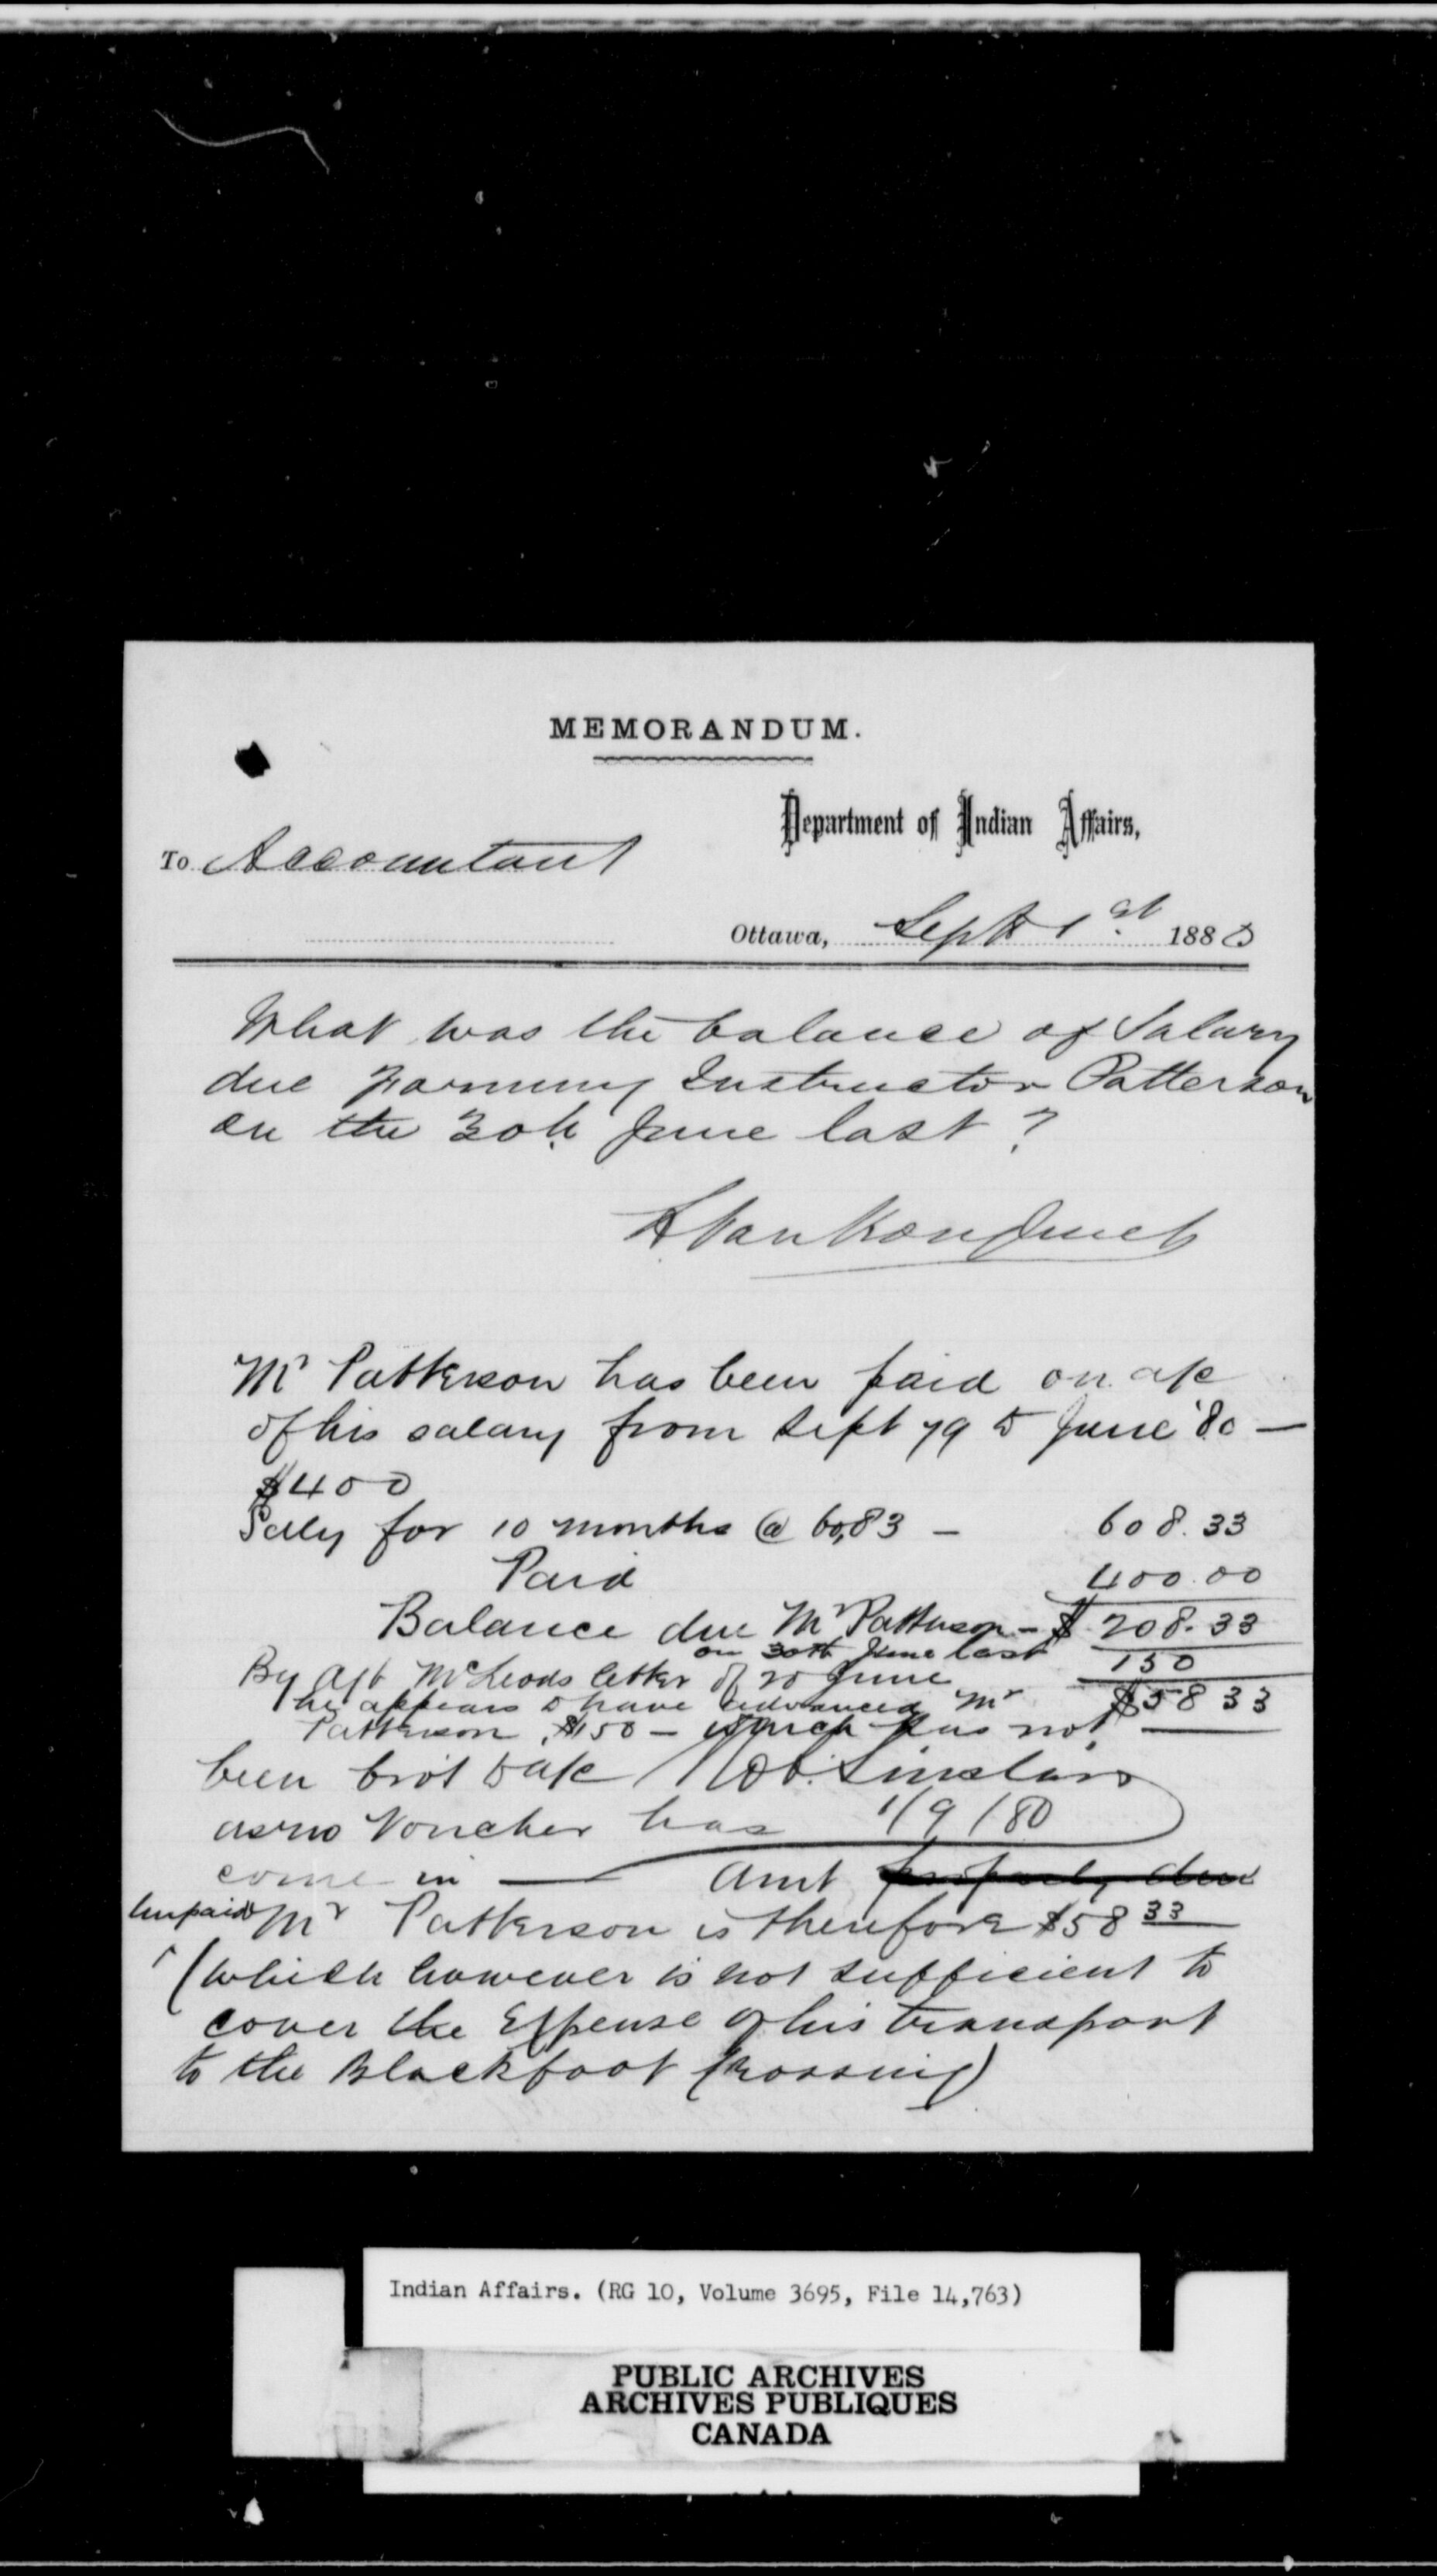 MEMORANDUM.
Department of Indian Affairs,
To Accountant
Ottawa, Sept 1st 1880
What was the balance of Salary
due Farming Instructor Patterson
on the 30th June last?
L VanKoughnet
Mr Patterson has been paid on a/c
of his salary from Sept 79 to June '80 —
$400
Saly for 10 months @ 60,83 — 608.33
Paid 400.00
Balance due Mr Patterson — $ 208.33
on 30th June last
150
By Agt McLeods letter of 20 June
he appears to have advanced Mr $58 33
Patterson $150 — which has not
been bro't to a/c Rob. Sinclair
as no Voucher has 1/9/80
come in — Amt properly due
unpaid Mr Patterson is therefore $58 33
(which however is not sufficient to
cover the Expense of his transport
to the Blackfoot Crossing)
Indian Affairs. (RG 10, Volume 3695, File 14,763)
PUBLIC ARCHIVES
ARCHIVES PUBLIQUES
CANADA